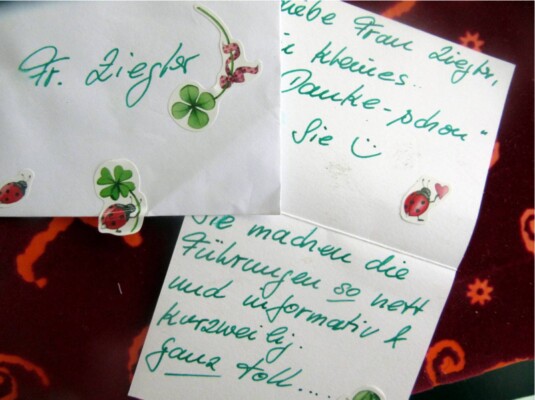 Fr. Ziegler
Liebe Frau Ziegler,
kleines..
Danke-schön"
Sie
Sie machen die
Führungen so nett
und informativ &
kurzweilig.
Ganz toll....